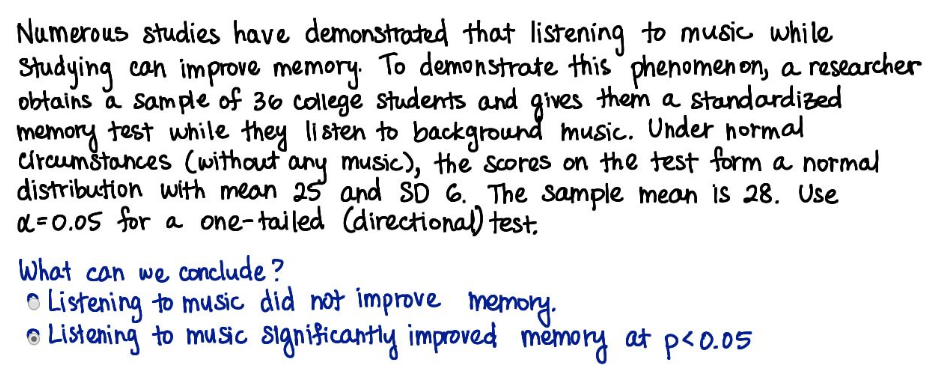 Numerous studies have demonstrated that listening to music while
studying can improve memory. To demonstrate this phenomenon, a researcher
obtains a sample of 36 college students and gives them a standardized
memory test while they listen to background music. Under normal
circumstances (without any music), the scores on the test form a normal
distribution with mean 25 and SD 6. The sample mean is 28. Use
α=0.05 for a one-tailed (directional) test.
What can we conclude?
Listening to music did not improve memory.
Listening to music significantly improved memory at p<0.05